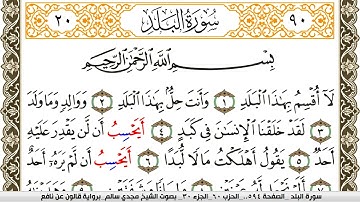 ٩٠ سُورَةُ الْبَلَدِ ٢٠
بِسْمِ اللَّهِ الرَّحْمَٰنِ الرَّحِيمِ
لَا أُقْسِمُ بِهَٰذَا الْبَلَدِ ١ وَأَنتَ حِلٌّ بِهَٰذَا الْبَلَدِ ٢ وَوَالِدٍ وَمَا وَلَدَ
٣ لَقَدْ خَلَقْنَا الْإِنسَٰنَ فِي كَبَدٍ ٤ أَيَحْسِبُ أَن لَّن يَقْدِرَ عَلَيْهِ
أَحَدٌ ٥ يَقُولُ أَهْلَكْتُ مَالًا لُّبَدًا ٦ أَيَحْسِبُ أَن لَّمْ يَرَهُ أَحَدٌ
سورة البلد _ الصفحة ٥٩٤ _ الحزب ٦٠ _ الجزء ٣٠ _ بصوت الشيخ مجدي سالم _ برواية قالون عن نافع